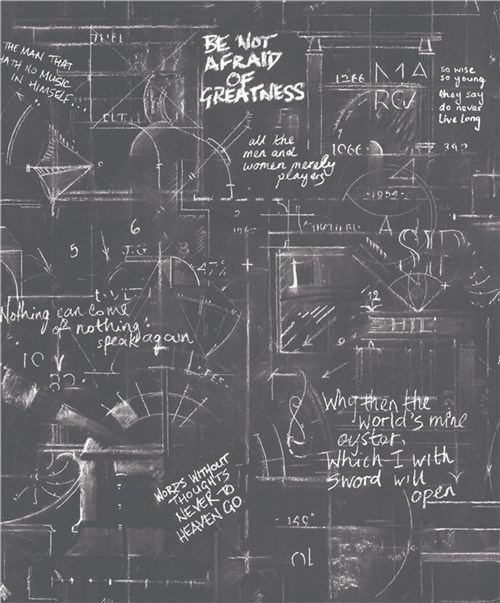 THE MAN THAT
HATH NO MUSIC
IN HIMSELF...
BE NOT
AFRAID
OF
GREATNESS
1266
MA
RG
so wise
so young
they say
do never
live long
all the
men and
women merely
players
1066
342
1954
2
6
5
J.G
8
A
SIP
12
Nothing can come
of nothing:
speak again
10
32
Why then the
world's mine
oyster,
Which I with
sword will
open
WORDS WITHOUT
THOUGHTS
NEVER TO
HEAVEN GO
10